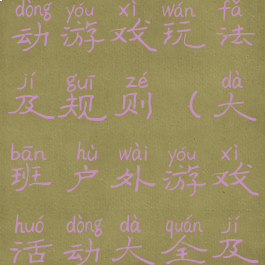 dòng yóu xì wán fǎ
动游戏玩法
jí guī zé dà
及规则（大
bān hù wài yóu xì
班户外游戏
huó dòng dà quán jí
活动大全及